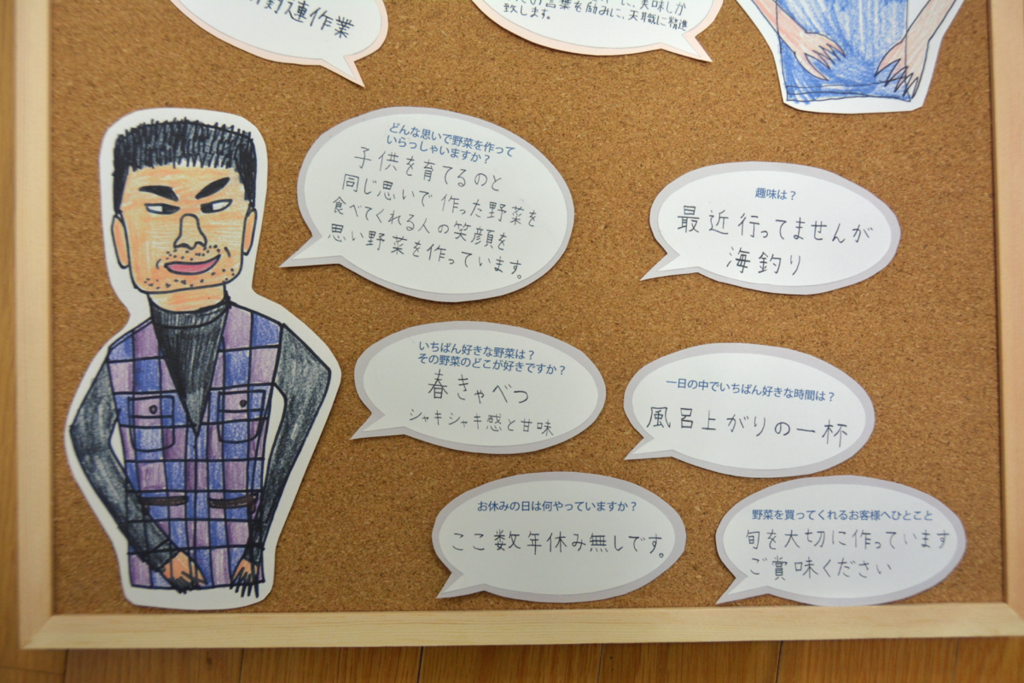 連作業
美味しか
言葉を励みに、天職に精進
致します。
どんな思いで野菜を作って
いらっしゃいますか？
子供を育てるのと
同じ思いで作った野菜を
食べてくれる人の笑顔を
思い野菜を作っています。
趣味は？
最近行ってませんが
海釣り
いちばん好きな野菜は？
その野菜のどこが好きですか？
春きゃべつ
シャキシャキ感と甘味
一日の中でいちばん好きな時間は？
風呂上がりの一杯
お休みの日は何やっていますか？
ここ数年休み無しです。
野菜を買ってくれるお客様へひとこと
旬を大切に作っています
ご賞味ください